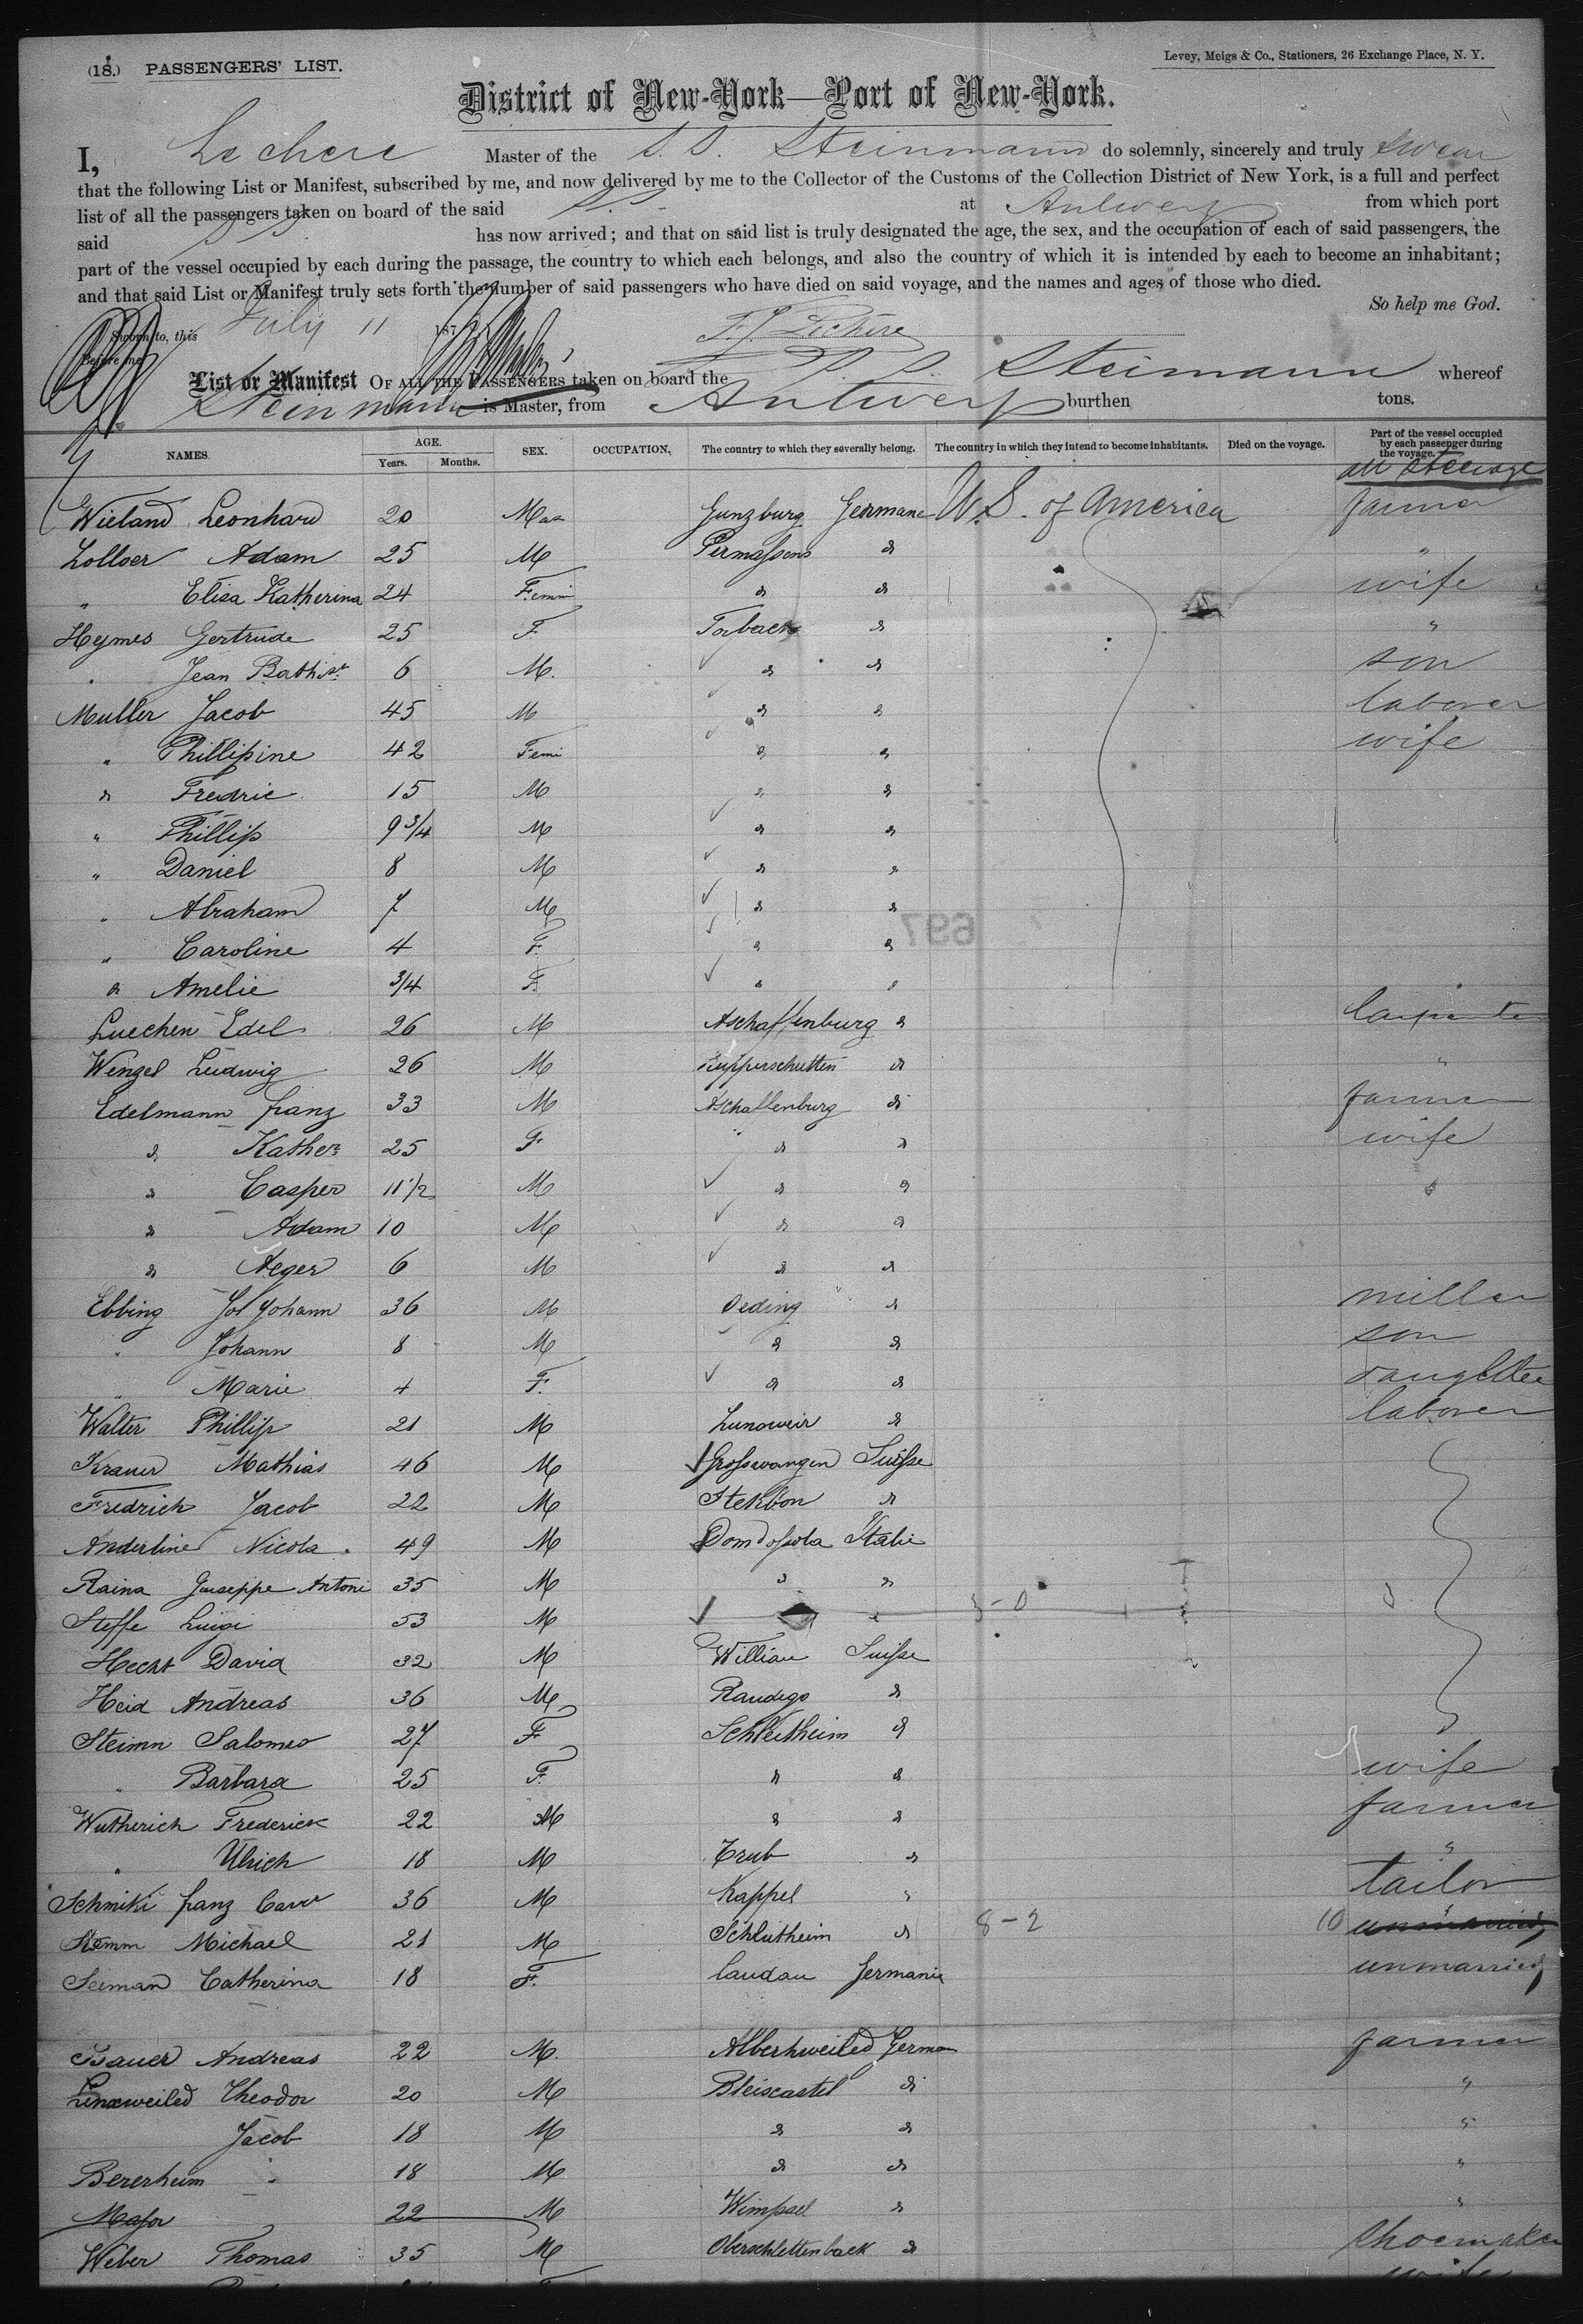 (18.) PASSENGERS' LIST.
Levey, Meigs & Co., Stationers, 26 Exchange Place, N. Y.
District of New-York—Port of New-York.
I, Lechere Master of the S.S. Steinmann do solemnly, sincerely and truly swear
that the following List or Manifest, subscribed by me, and now delivered by me to the Collector of the Customs of the Collection District of New York, is a full and perfect
list of all the passengers taken on board of the said S.S. at Antwerp from which port
said S S has now arrived; and that on said list is truly designated the age, the sex, and the occupation of each of said passengers, the
part of the vessel occupied by each during the passage, the country to which each belongs, and also the country of which it is intended by each to become an inhabitant;
and that said List or Manifest truly sets forth the number of said passengers who have died on said voyage, and the names and ages of those who died.
So help me God.
Sworn to, this July 11 187
Before me
List or Manifest OF ALL THE PASSENGERS taken on board the S. S. Steimann whereof
Steinmann is Master, from Antwerp burthen tons.
NAMES. AGE. Years. Months. SEX. OCCUPATION, The country to which they severally belong. The country in which they intend to become inhabitants. Died on the voyage. Part of the vessel occupied by each passenger during the voyage.
all steerage
Wieland Leonhard 20 Mas Gunzburg Germane U.S. of America farmer
Adam 25 M Permassens do "
" Elisa Katherina 24 Femin do do wife
Heymes Gertrude 25 F Forback do "
" Jean Bathist 6 M. do do son
Muller Jacob 45 M do do laborer
" Phillipine 42 Femi do do wife
do Fredric 15 M do do
" Phillip 9 3/4 M do do
" Daniel 8 M do do
" Abraham 7 M do do
697
" Caroline 4 F. do do
do Amelie 3/4 F. do do
Luechen Edel 26 M Aschaffenburg do Carpenter
Wenzel Ludwig 26 M do "
Edelmann franz 33 M Aschaffenburg do farmer
do Kather 25 F do do wife
do Casper 11 1/2 M do do
do Adam 10 M do do
do Aeger 6 M do do
Ebbing Jos Johann 36 M Oeding do miller
" Johann 8 M do do son
" Marie 4 F. do do daughter
Walter Phillip 21 M do laborer
Krauer Mathias 46 M Grosswangen Suisse
Fredrich Jacob 22 M Stekbon do
Anderline Nicola 49 M Domdossola Italie
Raina Guseppe Antoni 35 M do do
Steffe Luigi 53 M do
Hecht David 32 M Willian Suisse
Heid Andreas 36 M Randego do
Steimn Salomeo 27 F Schleitheim do
" Barbara 25 F. do do wife
Wutherich Frederick 22 M do do farmer
" Ulrich 18 M Trub do "
Schmiki franz 36 M Kappel do tailor
Michael 21 M Schlutheim do 8-2 10 unmarried
Seeman Catherina 18 F. Landau Germanie unmarried
Bauer Andreas 22 M. Alberhweiled German farmer
Linxweiled Theodor 20 M Bleiscastel do "
Jacob 18 M do do "
Bererheim " 18 M do do "
Major 22 M Wimpsel do "
Weber Thomas 35 M Oberschlettenback do shoemaker
wife